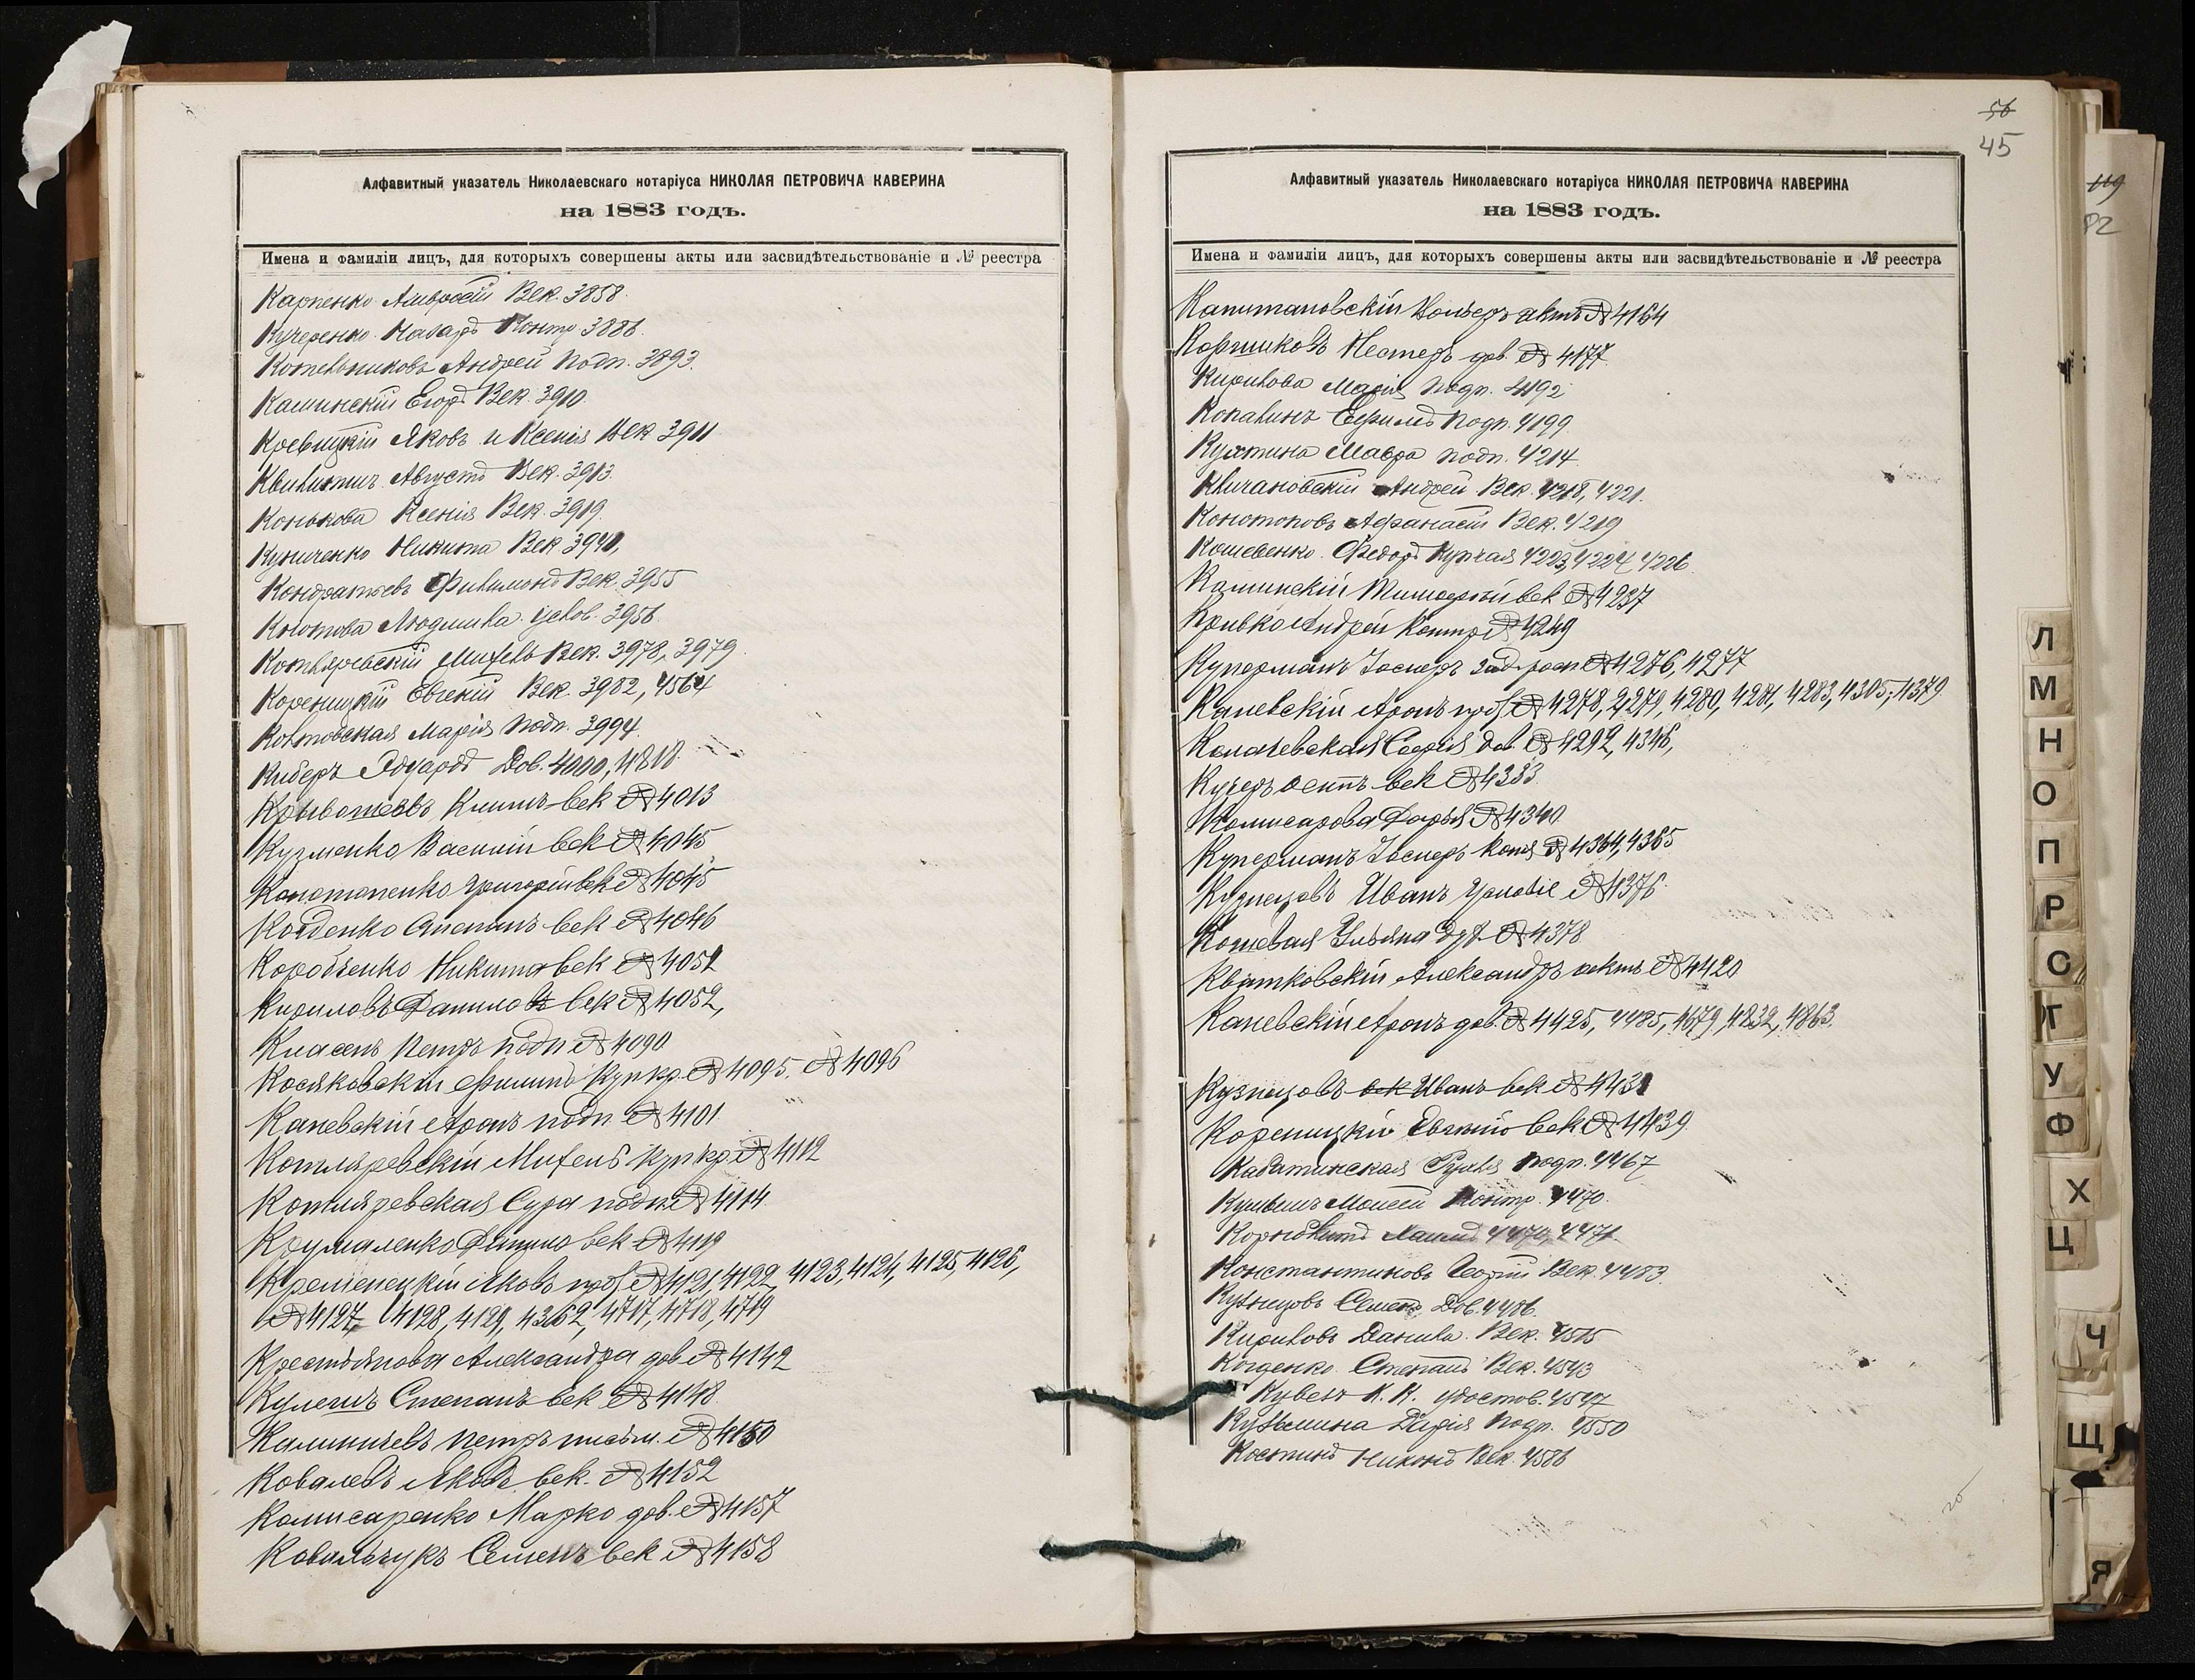 Алфавитный указатель Николаевскаго нотаріуса НИКОЛАЯ ПЕТРОВИЧА КАВЕРИНА
на 1883 годъ.
Имена и фамиліи лицъ, для которыхъ совершены акты или засвидѣтельствованіе и № реестра
Карпенко Амвросій Век. 3858.
Кучеренко Назаръ Контр. 3886.
Котельниковъ Андрей подп. 3893.
Каминскій Егоръ Век. 3910.
Кревицкій Яковъ и Ксенія Век 3911
Августъ Век. 3913.
Конькова Ксенія Век. 3919.
Куниченко Никита Век 3941,
Кондратьевъ Филимонъ Век. 3955
Людмила услов. 3956.
Котляревскій Михель Век. 3978, 3979.
Кореницкій Евгеній Век. 3982, 4564
Колтовская Марія подп. 3994.
Киберъ Эдуардъ Дов. 4000, 4818.
Климъ век № 4013
Кузменко Василій век № 4045
Конотопенко Григорій век № 4045
Козденко Степанъ век № 4046
Коробченко Никита век № 4051
Кириловъ Данило век № 4052,
Класенъ Петръ подп № 4090
Косяковскій Филипъ Куп кр. № 4095, № 4096
Каневскій Аронъ подп № 4101.
Котляревскій Михель Куп кр. № 4112
Котляревская Сура подп. № 4114.
Крумаленко Данило век № 4119
Кременецкій Яковъ прот № 4121, 4122, 4123, 4124, 4125, 4126,
№ 4127, 4128, 4129, 4362, 4717, 4718, 4719
Крестьянова Александра дов № 4142
Кулешъ Степанъ век № 4148.
Калиничевъ Петръ письм. № 4150
Ковалевъ Яковъ век. № 4152
Комисаренко Марко дов. № 4157
Ковальчукъ Семенъ век № 4158
56
45
119
82
Алфавитный указатель Николаевскаго нотаріуса НИКОЛАЯ ПЕТРОВИЧА КАВЕРИНА
на 1883 годъ.
Имена и фамиліи лицъ, для которыхъ совершены акты или засвидѣтельствованіе и № реестра
Капитановскій Вольфъ актъ № 4164
Коршиковъ Нестеръ дов. № 4177.
Кирилова Марія подп. 4192
Копалинъ Ефимъ подп. 4199.
Кухтина Мавра подп. 4214.
Андрей Век. 4218, 4221.
Конотоповъ Афанасій Век. 4219
Кошевенко Федоръ Купчая 4223, 4224, 4226.
Каминскій Тимофей век № 4237
Кривко Андрей контр № 4249
Куперманъ Іосифъ № 4276, 4277
Каневскій Аронъ прот № 4278, 4279, 4280, 4281, 4283, 4305, 4379
Софія дов. № 4292, 4346,
Кучеръ Осипъ век № 4333.
Комисарова Дарья № 4340
Куперманъ Іосифъ копія № 4364, 4365
Кузнецовъ Иванъ Условіе № 4376.
Котевая Ульяна дух № 4378
Квятковскій Александръ актъ № 4420
Каневскій Аронъ дов. № 4425, 4485, 4679, 4832, 4863.
Кузнецовъ век Иванъ век № 4431
Кореницкій Евгеній век № 4439.
Кабатинская Рухля подп. 4467
Кульшъ Моисей Контр. 4470.
4470, 4471
Константиновъ Георгій Век. 4483.
Кузнецовъ Семенъ Дов. 4486.
Кириловъ Данила Век. 4515
Козденко Степанъ Век. 4543
Кувезъ К. К. удостов. 4547
Кузьмина Дарія подп. 4550
Костинъ Никонъ Век. 4586
Л
М
Н
О
П
Р
С
Т
У
Ф
Х
Ц
Ч
Щ
Я